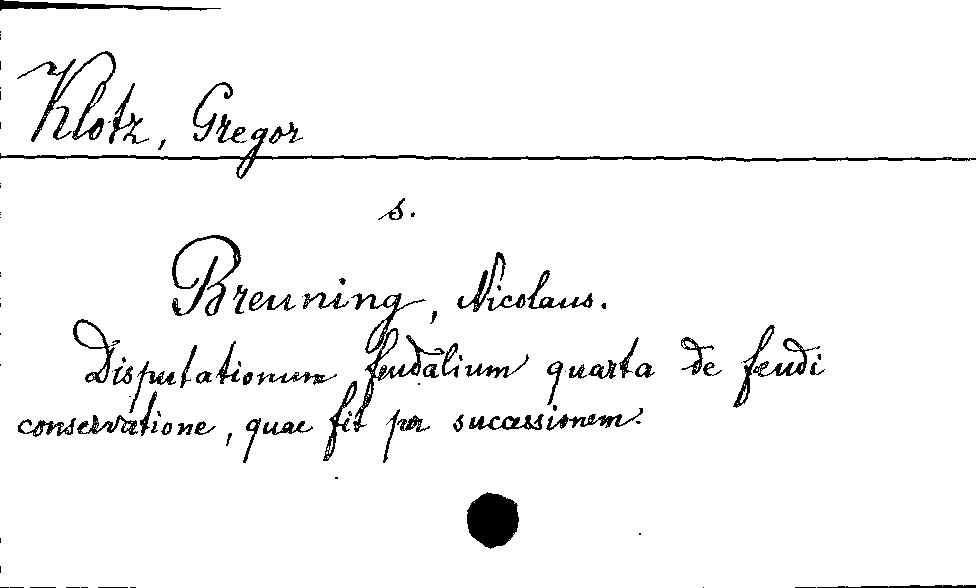 Klotz, Gregor
s.
Breuning, Nicolaus.
Disputationum feudalium quarta de feudi
conservatione, quae fit per successionem.